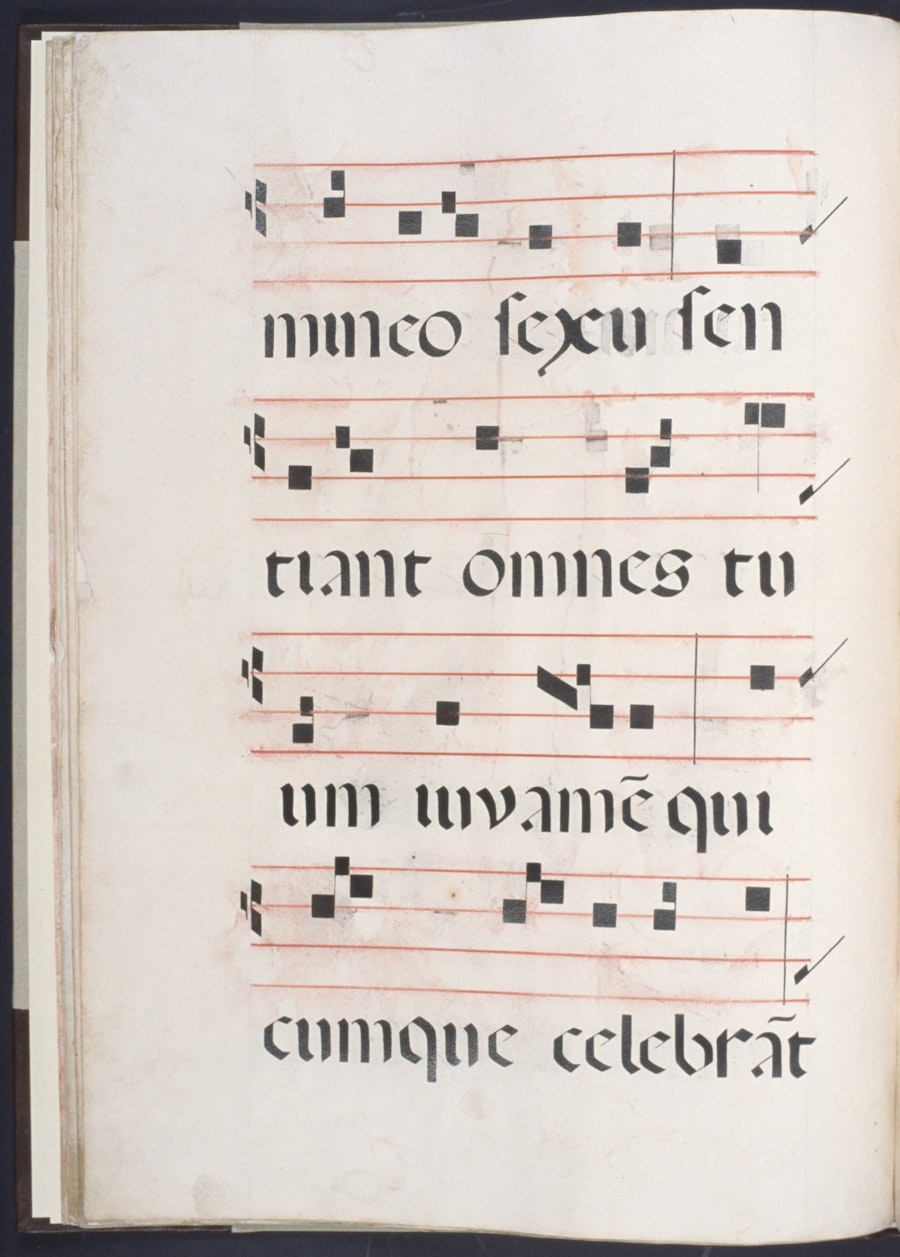 mineo sexu sen
tiant omnes tu
um iuvamē qui
cumque celebrāt